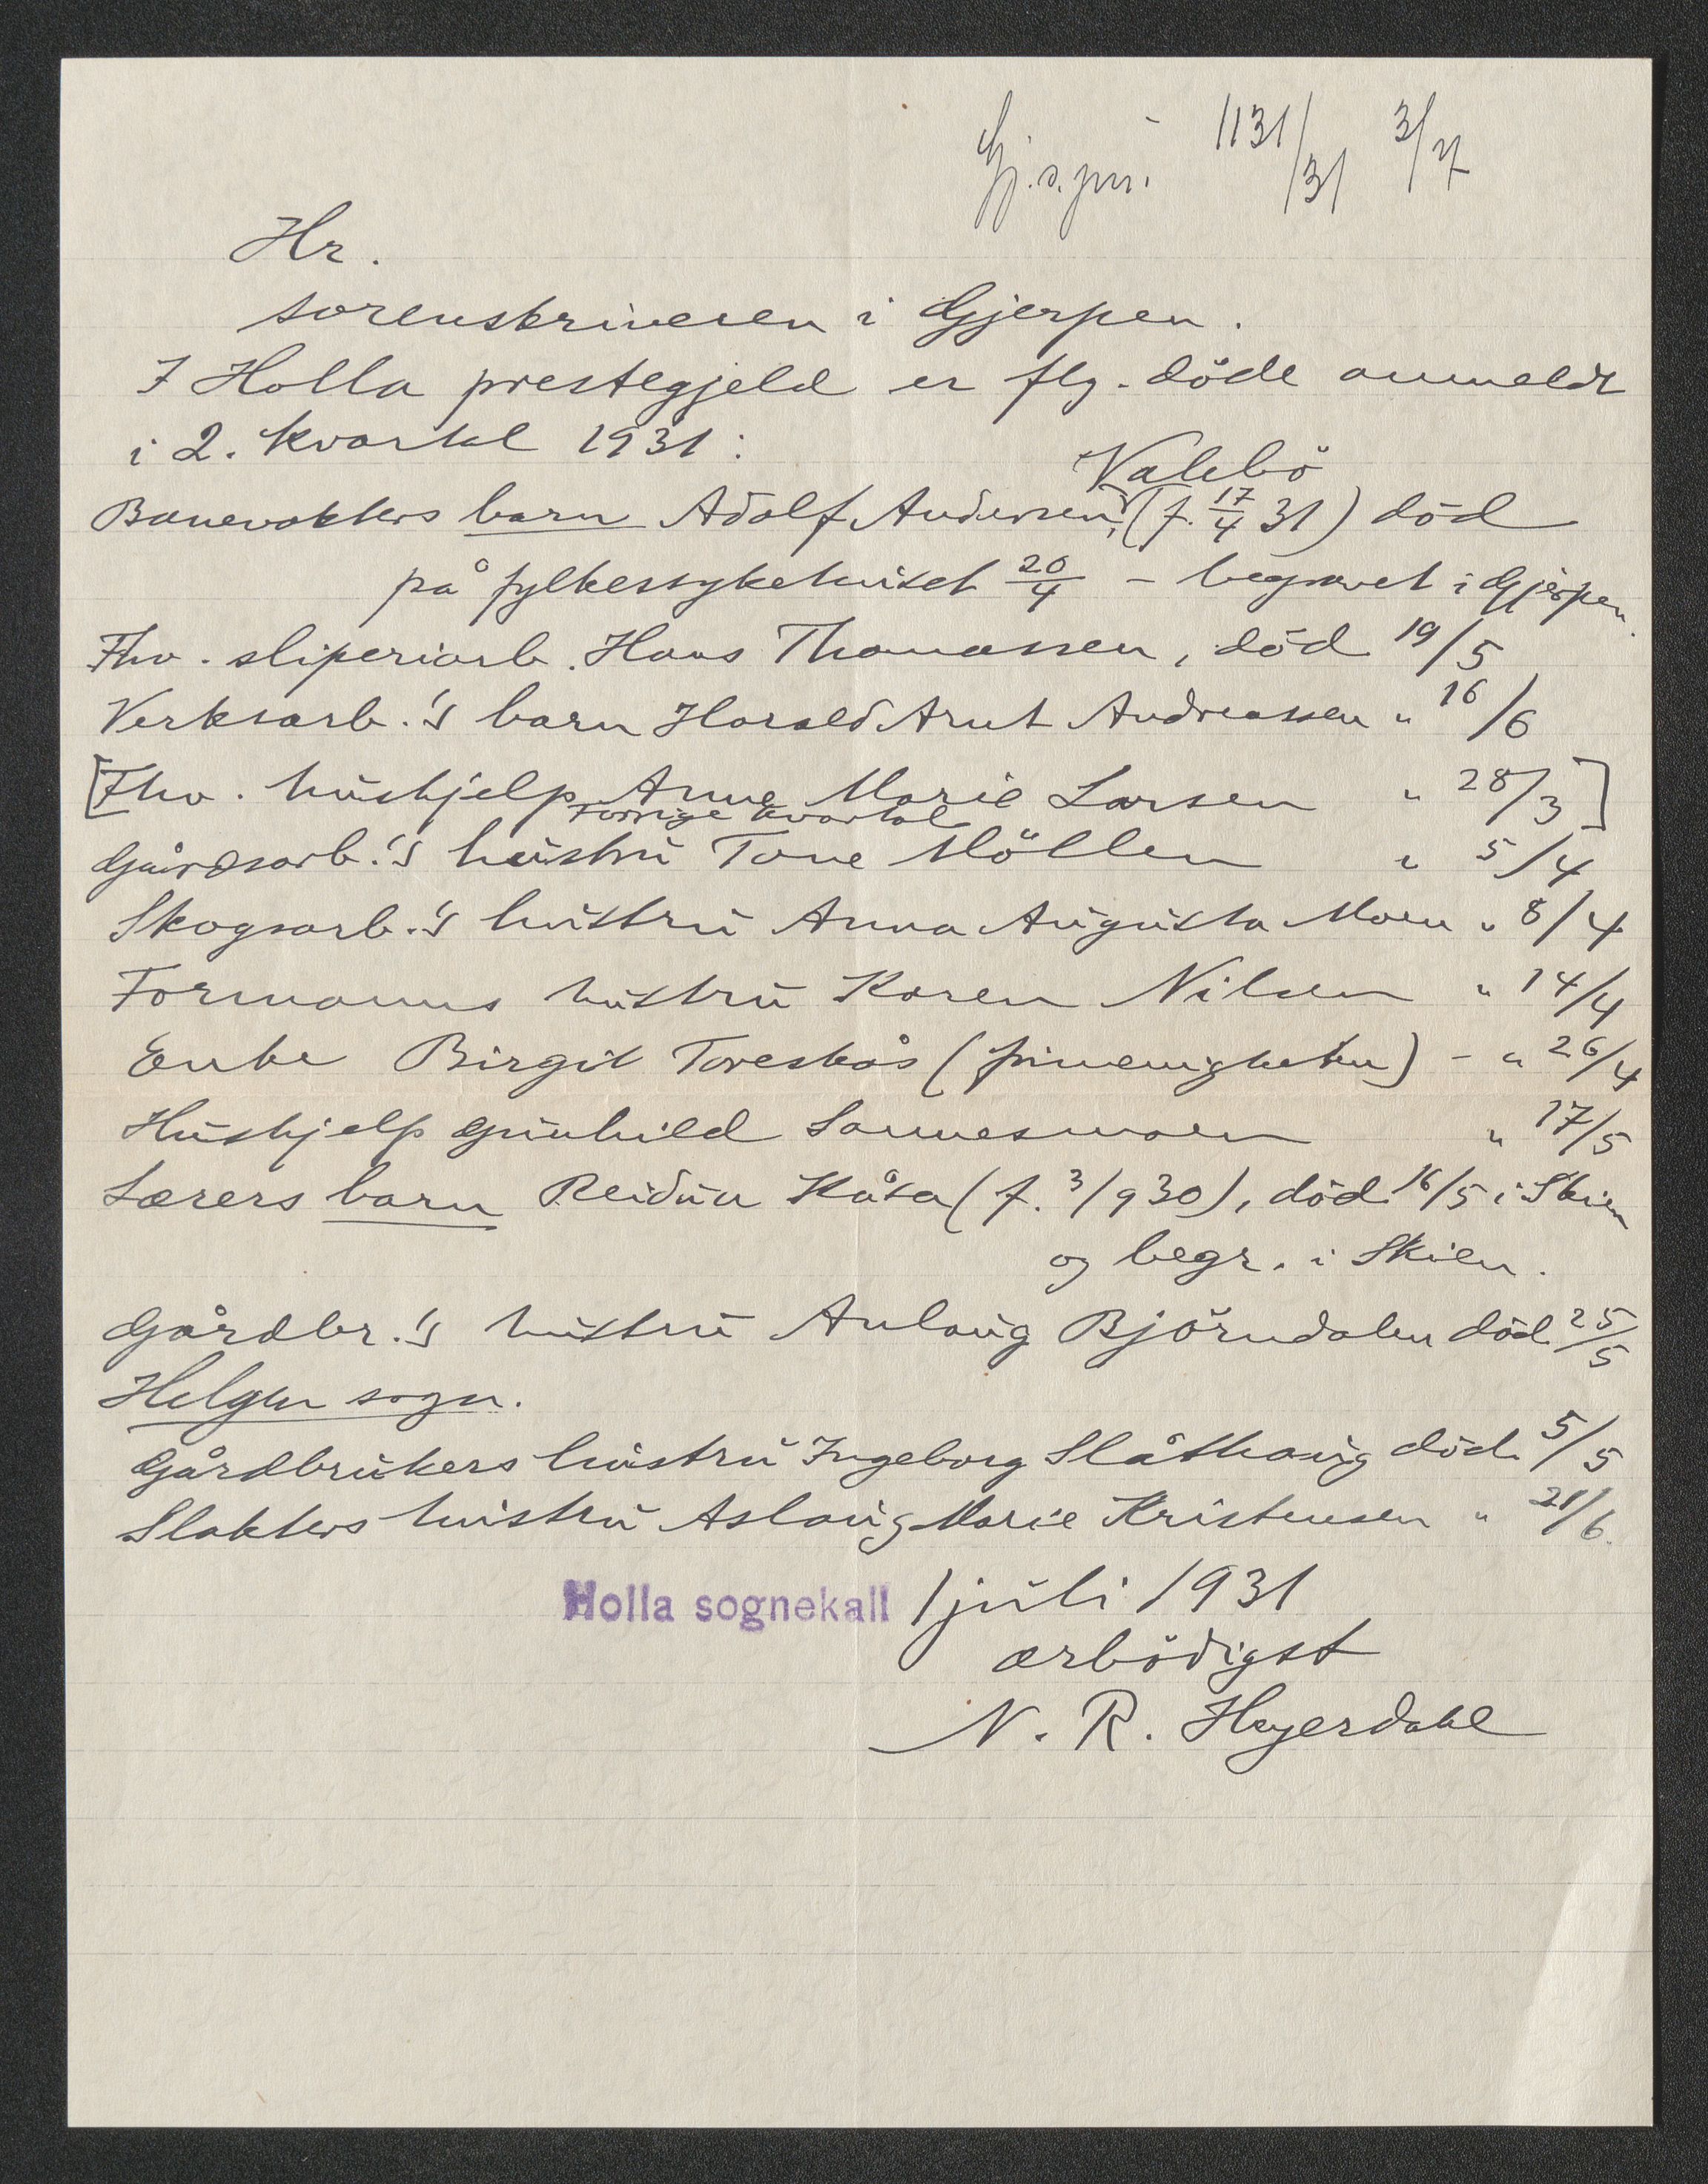 Gj. s. jnr. 1131/31 3/7
Hr.
sorenskriveren i Gjerpen.
I Holla prestegjeld er flg. döde anmeldt
i 2. kvartal 1931:
Valebö
Banevokters barn Adolf Andersen, (f. 17/4 31) död
på fylkessykehuset 20/4 - begravet i Gjerpen.
Fhv. sliperiarb. Hans Thomassen, död 19/5
Verksarb.'s barn Harald Arnt Andreassen " 16/6
[Fhv. hushjelp Anne Marie Larsen " 28/3]
forrige kvartal
Gårdsarb.'s hustru Tone Möllen " 5/4
Skogsarb.'s hustru Anna Augusta Moen " 8/4
Formanns hustru Karen Nilsen " 14/4
Enke Birgit Toreskås (frimenigheten) - " 26/4
Hushjelp Gunhild Sannesmoen " 17/5
Lærers barn Reidun Kåsa (f. 3/9 30), död 16/5 i Skien
og begr. i Skien.
Gårdbr.'s hustru Anlaug Björndalen död 25/5
Helgen sogn.
Gårdbrukers hustru Ingeborg Slåthaug död 5/5
Slakters hustru Aslaug Marie Kristensen " 21/6.
Holla sognekall 1 juli 1931
ærbödigst
N. R. Heyerdahl